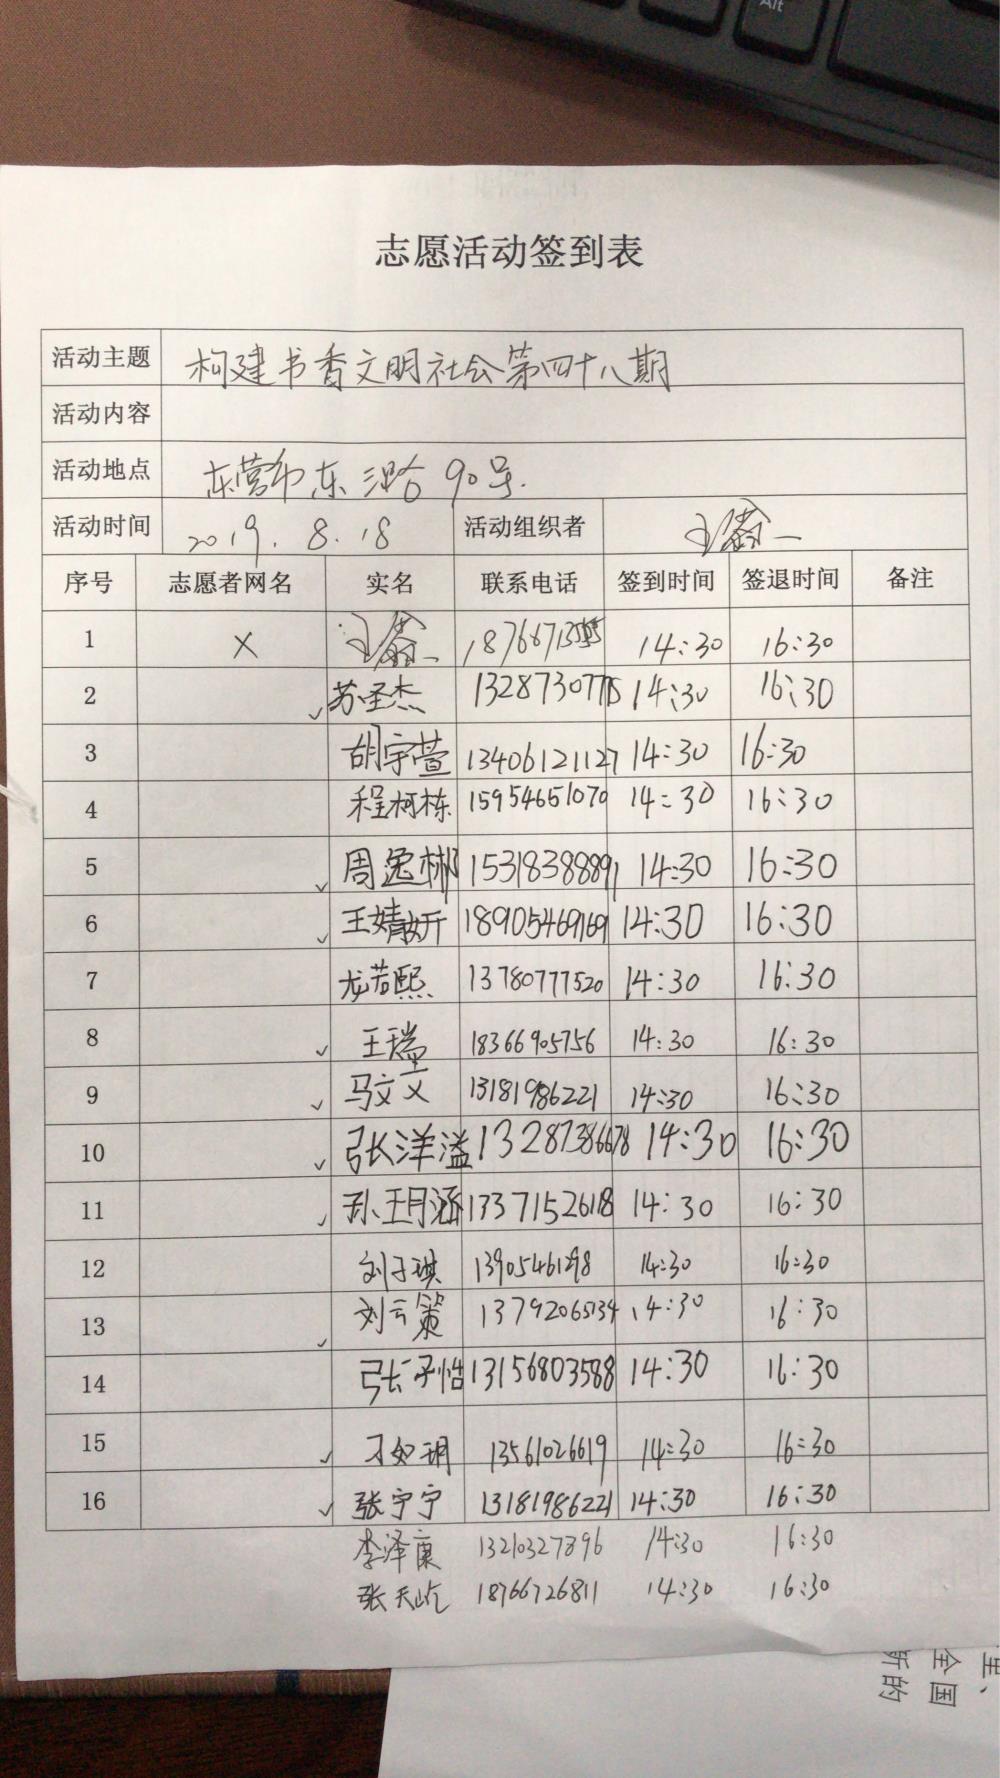 Alt
志愿活动签到表
活动主题 构建书香文明社会第四十八期
活动内容
活动地点 东营市东三路90号.
活动时间 2019.8.18 活动组织者
序号 志愿者网名 实名 联系电话 签到时间 签退时间 备注
1 × 14:30 16:30
2 ✓ 苏圣杰 14:30 16:30
3 胡宇萱 13406121127 14:30 16:30
4 程柯栋 15954651070 14:30 16:30
5 ✓ 周逸彬 15318388891 14:30 16:30
6 ✓ 王婧妍 18905469169 14:30 16:30
7 龙若熙 13780777520 14:30 16:30
8 ✓ 王瑞 18366905756 14:30 16:30
9 ✓ 马文义 13181986221 14:30 16:30
10 ✓ 张洋溢 13287386678 14:30 16:30
11 ✓ 孙王月涵 13371526118 14:30 16:30
12 刘子琪 14:30 16:30
13 ✓ 刘云策 13792065734 14:30 16:30
14 张子怡 13156803588 14:30 16:30
15 ✓ 13561026619 14:30 16:30
16 ✓ 张宁宁 13181986221 14:30 16:30
李泽康 13210327896 14:30 16:30
张天屹 18766726811 14:30 16:30
里、
全国
所的